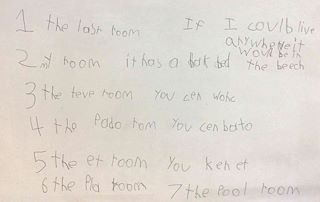 1 the last room If I coulb live
anywhere it
woulb be in
2 my room it has a bed the beech
3 the teve room you cen
4 the room you cen
5 the et room you ken et
6 the Pla room 7 the Pool room